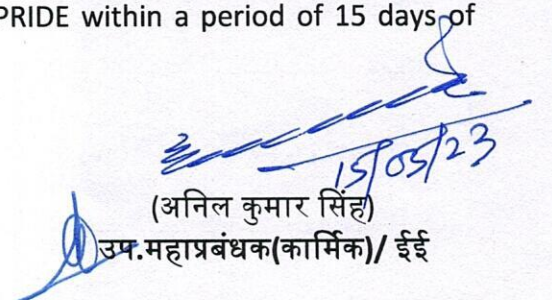 PRIDE within a period of 15 days of
15/05/23
(अनिल कुमार सिंह)
उप.महाप्रबंधक(कार्मिक)/ ईई